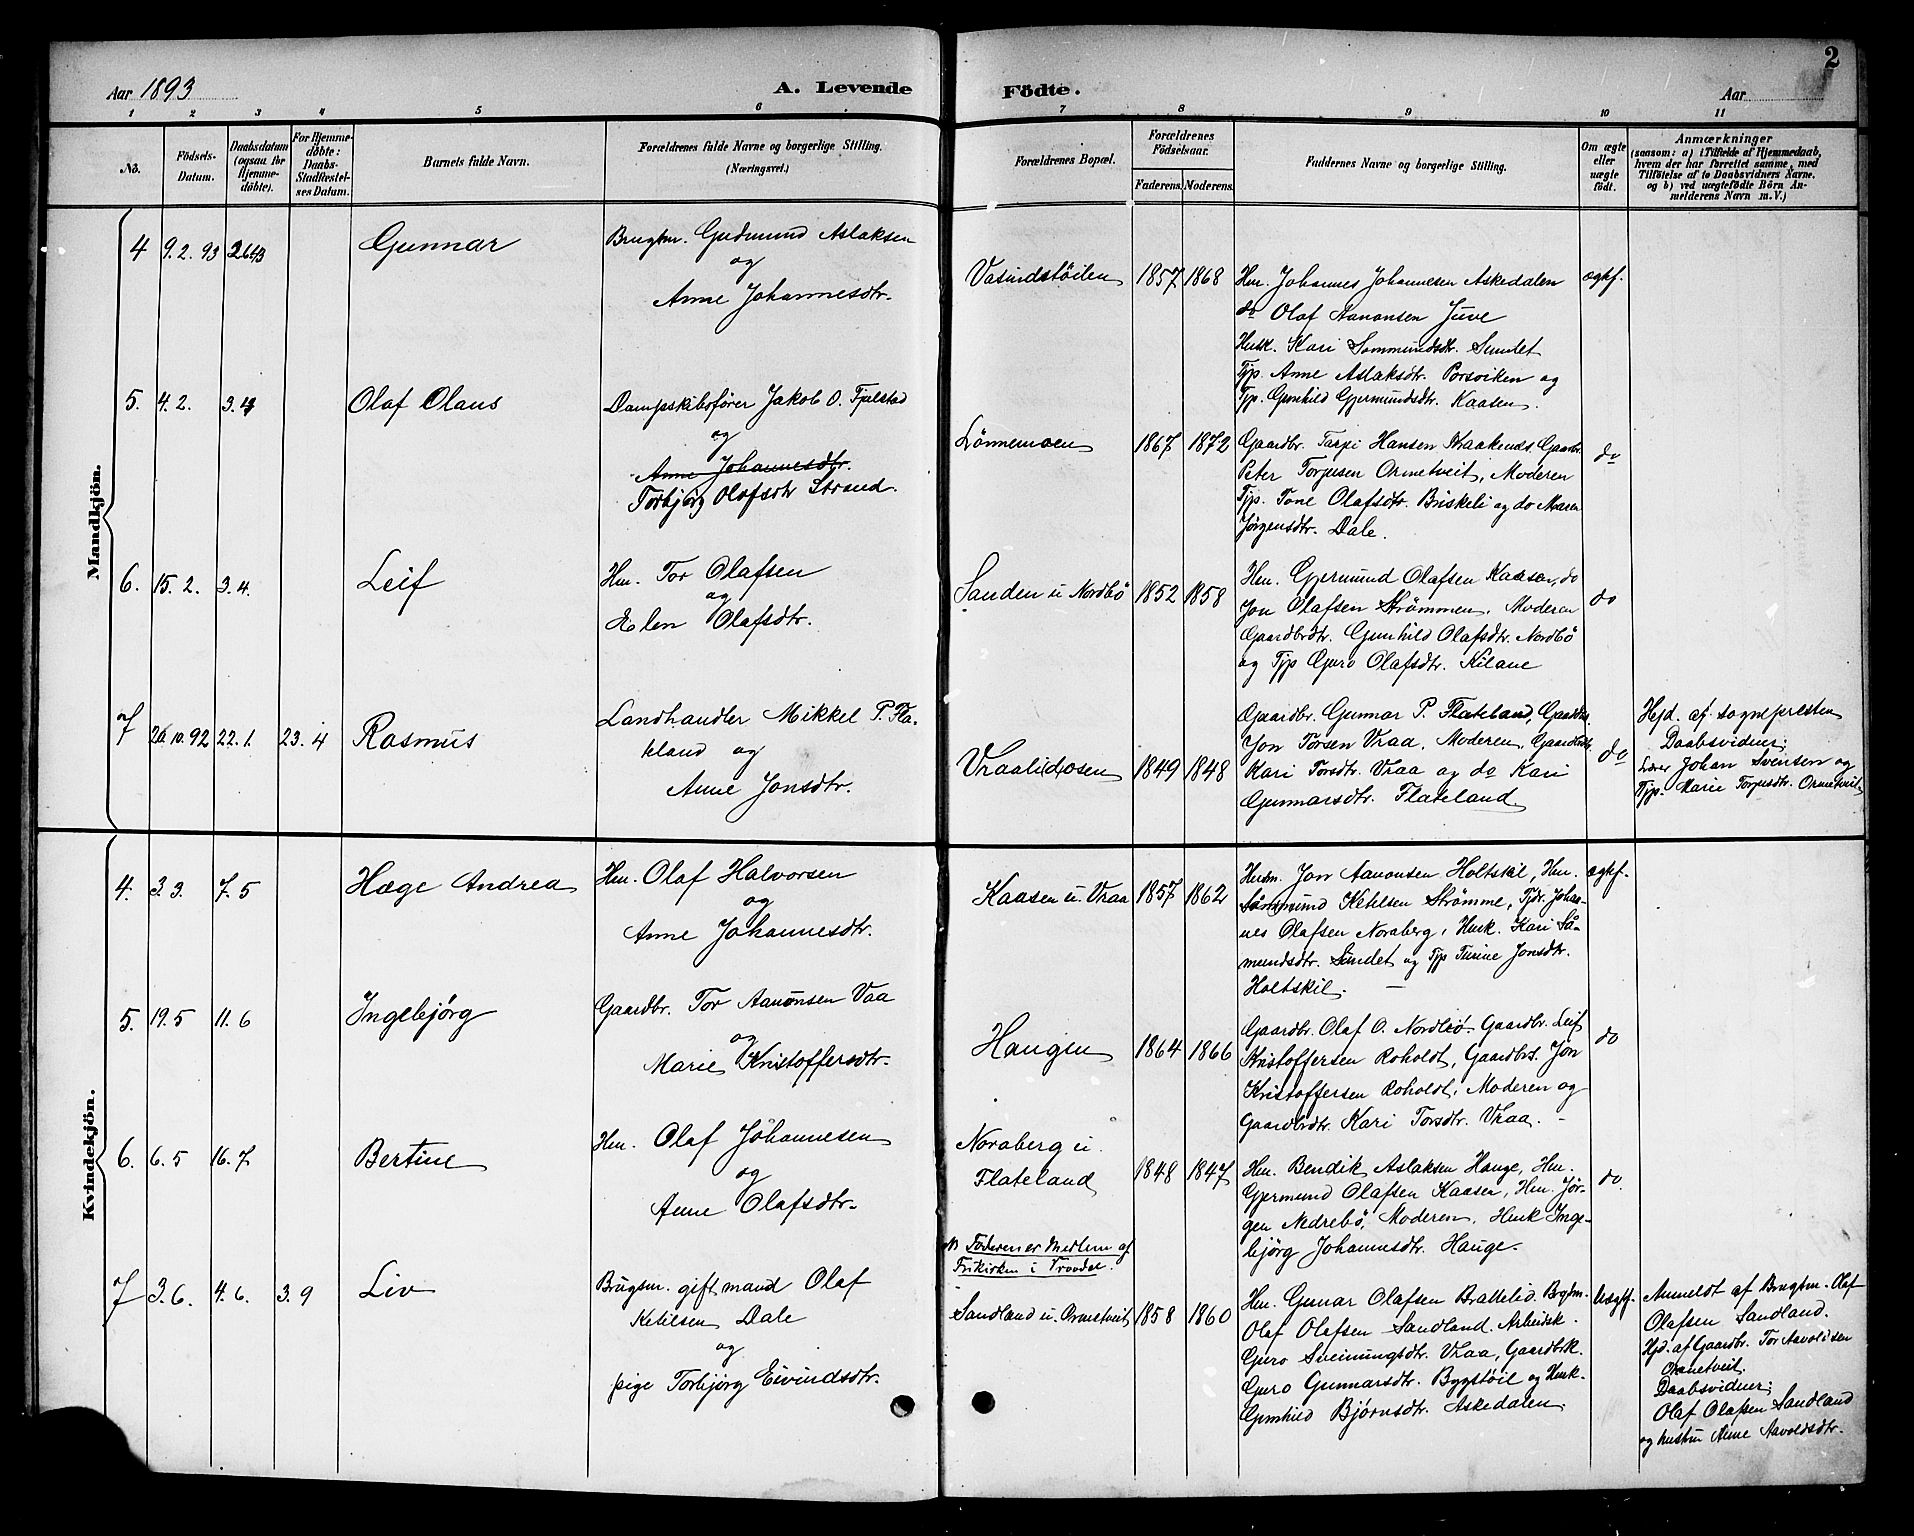 2
Aar 1893
A. Levende
Födte.
Aar
1 2 3 4 5 6 7 8 9 10 11
No.
Födsels-
Datum.
Daabsdatum
(ogsaa for
Hjemme-
döbte).
For Hjemme-
döbte:
Daabs-
Stadfæstel-
ses Datum.
Barnets fulde Navn.
Forældrenes fulde Navne og borgerlige Stilling.
(Næringsvei.)
Forældrenes Bopæl.
Forældrenes
Födselsaar.
Faderens. Moderens.
Faddernes Navne og borgerlige Stilling.
Om ægte
eller
uægte
födt.
Anmærkninger
(saasom: a) i Tilfælde af Hjemmedaab,
hvem der har forrettet samme, med
Tilföielse af to Daabsvidners Navne.
og b) ved uægtefödte Börn An-
melderens Navn m. V.)
Mandkjön.
4 9.2.93 Gunnar
Brugsm. Gudmund Aslaksen
og
Anne Johannesdtr.
Vasundstöilen 1857 1868
Hm. Johannes Johannesen Askedalen ægtf.
do Olaf Aanonsen Juve
Husk. Kari Sommundsdtr. Sundet
Tjp. Anne Aslaksdtr. Porsviken og
Tjp. Gunhild Gjermundsdtr. Kaasen.
5. 4.2. 3.4 Olaf Olaus
Dampskibsfører Jakob O. Fjelstad
og
Anne Johannesdtr.
Torbjørg Olafsdtr Strand.
Lönnemoen 1867 1872
Gaardbr. Tarjei Hansen Kraakenes, Gaardbr.
Peter Torjusen Ormetveit, Moderen
Tjp. Tone Olafsdtr. Briskeli og do Maren
Jørgensdtr. Dale.
do
6. 15.2. 3.4. Leif
Hm. Tor Olafsen
og
Elen Olafsdtr.
Sanden u Nordbö 1852 1858
Hm. Gjermund Olafsen Kaasen, do
Jon Olafsen Strömmen, Moderen
Gaardbrdtr. Gunhild Olafsdtr. Nordbö
og Tjp Guro Olafsdtr. Kilane
do
7 26.10.92 22.1. 23.4 Rasmus
Landhandler Mikkel P. Fla-
teland og
Anne Jonsdtr.
Vraalidosen 1849 1848
Gaardbr. Gunnar P. Flateland, Gaardbr.
Jon Torsen Vraa, Moderen, Gaardbrdtr.
Kari Torsdtr. Vraa og do Kari
Gunnarsdtr. Flateland
do
Hjd. af sognepresten
Daabsvidner;
Lærer Johan Svensen og
Tjp. Marie Torjusdtr. Ormetveit
Kvindekjön.
4. 3.3. 7.5 Hæge Andrea
Hm. Olaf Halvorsen
og
Anne Johannesdtr.
Kaasen u. Vraa 1857 1862
Husm. Jon Aanonsen Holtskil, Hm.
Sömmund Ketilsen Strømme, Tjdr. Johan-
nes Olafsen Noraberg, Husk. Kari Sö-
mundsdtr. Sundet og Tjp Turine Jonsdtr.
Holtskil. —
ægtf.
5. 19.5 11.6 Ingebjørg
Gaardbr. Tor Aanonsen Vaa
og
Marie Kristoffersdtr.
Haugen 1864 1866
Gaardbr. Olaf O. Nordbö, Gaardbr. Leif
Kristoffersen Roholdt, Gaardbrs. Jon
Kristoffersen Roholdt, Moderen og
Gaardbrdtr. Kari Torsdtr. Vraa. -
do
6. 6.5 16.7 Bertine
Hm. Olaf Johannesen
og
Anne Olafsdtr.
Noraberg u.
Flateland 1848 1847
Hm. Bendik Aslaksen Hauge, Hm.
Gjermund Olafsen Kaasen, Hm. Jör-
gen Nedrebö, Moderen, Husk Inge-
björg Johannesdtr. Hauge.
do.
Faderen er Medlem af
Frikirken i Vraadal.
7 3.6. 4.6. 3.9 Liv
Brugsm. gift mand Olaf
Ketilsen Dale
og
pige Torbjørg Eivindsdtr.
Sandland u. Ormetveit 1858 1860
Hm. Gunar Olafsen Brattelid. Bgtm.
Olaf Olafsen Sandland. Arbeidsk.
Guro Sveinungsdtr. Vraa, Gaardbrk.
Guro Gunnarsdtr. Bygstöil og Husk.
Gunhild Bjørnsdtr. Askedalen.
Uægtf.
Anmeldt af Brugtm. Olaf
Olafsen Sandland.
Hjd. af Gaardbr. Tor Aavoldsen
Ormetveit.
Daabsvidner;
Olaf Olafsen Sandland
og hustru Anne Aavoldsdtr.